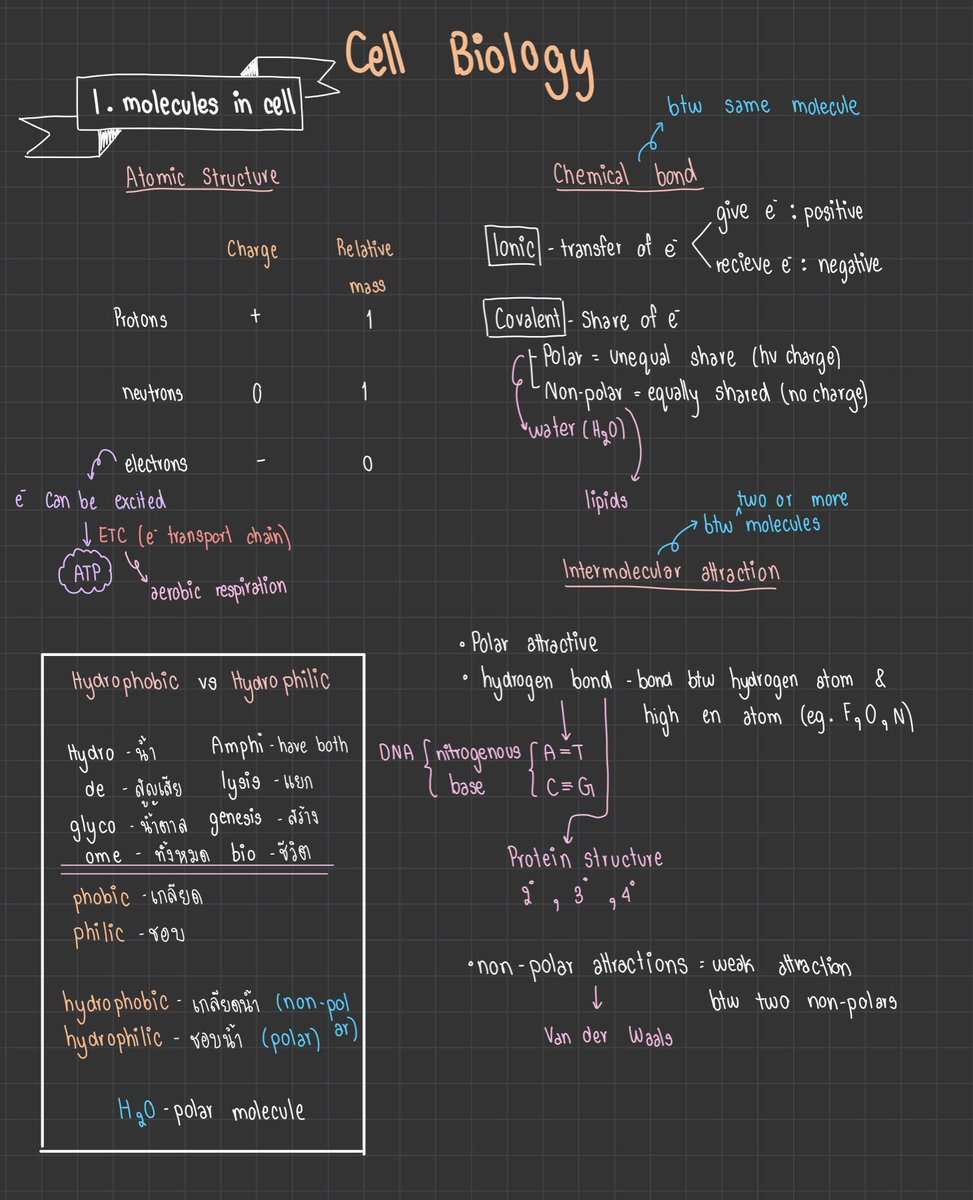 Cell Biology
1. molecules in cell
Atomic Structure
Charge Relative
mass
Protons + 1
neutrons 0 1
electrons - 0
e⁻ can be excited
ETC (e⁻ transport chain)
ATP
aerobic respiration
Hydrophobic vs Hydrophilic
Hydro - น้ำ Amphi - have both
de - สูญเสีย lysis - แยก
glyco - น้ำตาล genesis - สร้าง
ome - ทั้งหมด bio - ชีวิต
phobic - เกลียด
philic - ชอบ
hydrophobic - เกลียดน้ำ (non-pol
ar)
hydrophilic - ชอบน้ำ (polar)
H₂O - polar molecule
btw same molecule
Chemical bond
Ionic - transfer of e⁻
give e⁻ : positive
recieve e⁻ : negative
Covalent - Share of e⁻
Polar = unequal share (hv charge)
Non-polar = equally shared (no charge)
water (H₂O)
lipids
two or more
btw ^ molecules
Intermolecular attraction
• Polar attractive
• hydrogen bond - bond btw hydrogen atom &
high en atom (eg. F, O, N)
DNA { nitrogenous { A = T
base C ≡ G
Protein structure
2°, 3°, 4°
• non-polar attractions = weak attraction
btw two non-polars
Van der Waals